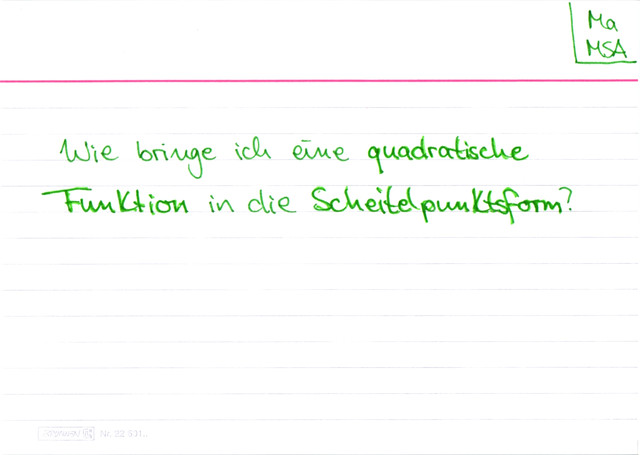 Ma
MSA
Wie bringe ich eine quadratische
Funktion in die Scheitelpunktsform?